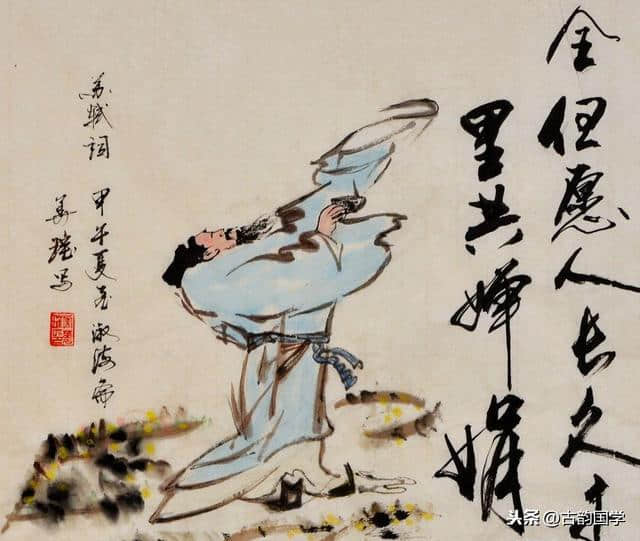 全但愿人长久千
里共婵娟
苏轼词
甲午夏
写
头条 @古韵国学